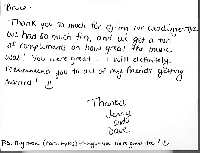 Bruce -
Thank you so much for djing our wedding.
We had so much fun, and we got a ton
of compliments on how great the music
was! You were great... I will definitely
recommend you to all of my friends getting
married! :)
-Thanks!
Jenny
and
Dave
P.S. My mom thought you were great too!